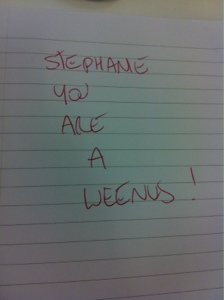 STEPHANIE
YOU
ARE
A
WEENUS!